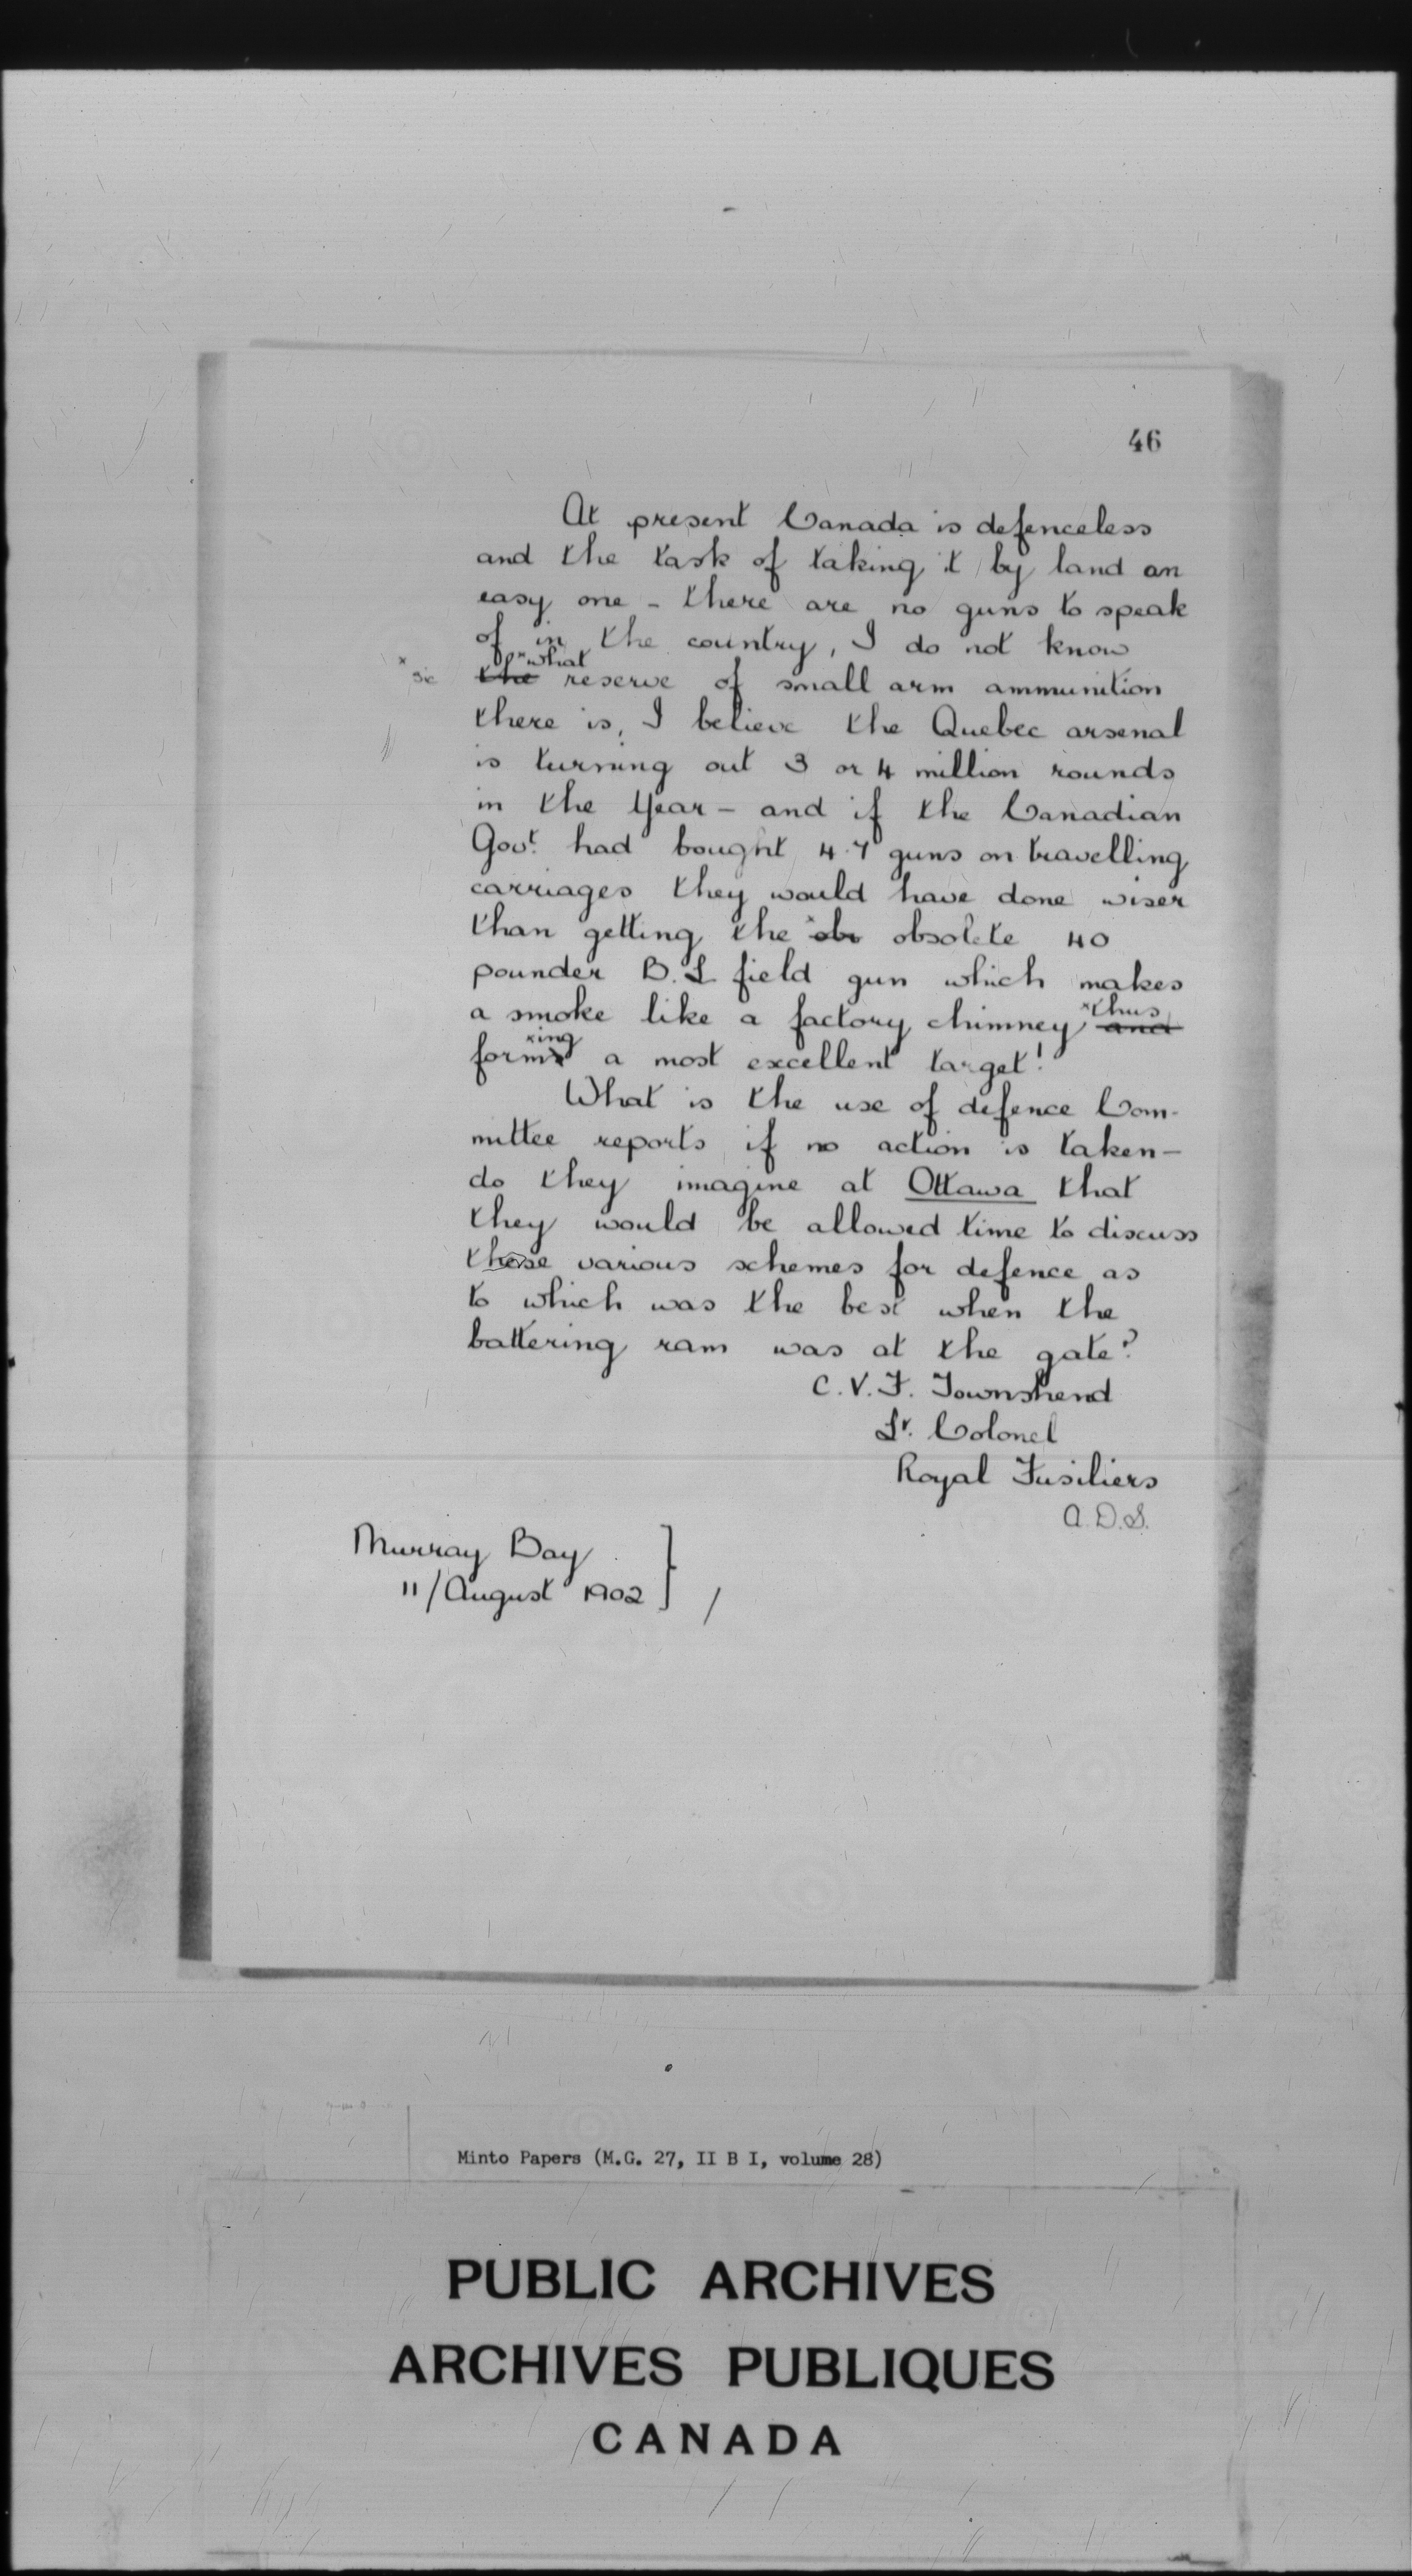 46
At present Canada is defenceless
and the task of taking it by land an
easy one - there are no guns to speak
of in the country, I do not know
x of x what
sic the reserve of small arm ammunition
there is, I believe the Quebec arsenal
is turning out 3 or 4 million rounds
in the Year - and if the Canadian
Govt. had bought 4.7 guns on travelling
carriages they would have done wiser
than getting the x obs obsolete 40
pounder B.L field gun which makes
a smoke like a factory chimney x thus and
forms x ing a most excellent target!
What is the use of defence Com-
mittee reports if no action is taken -
do they imagine at Ottawa that
they would be allowed time to discuss
these various schemes for defence as
to which was the best when the
battering ram was at the gate?
C. V. F. Townshend
Lt. Colonel
Royal Fusiliers
A.D.S.
Murray Bay
11/August 1902
Minto Papers (M.G. 27, II B I, volume 28)
PUBLIC ARCHIVES
ARCHIVES PUBLIQUES
CANADA